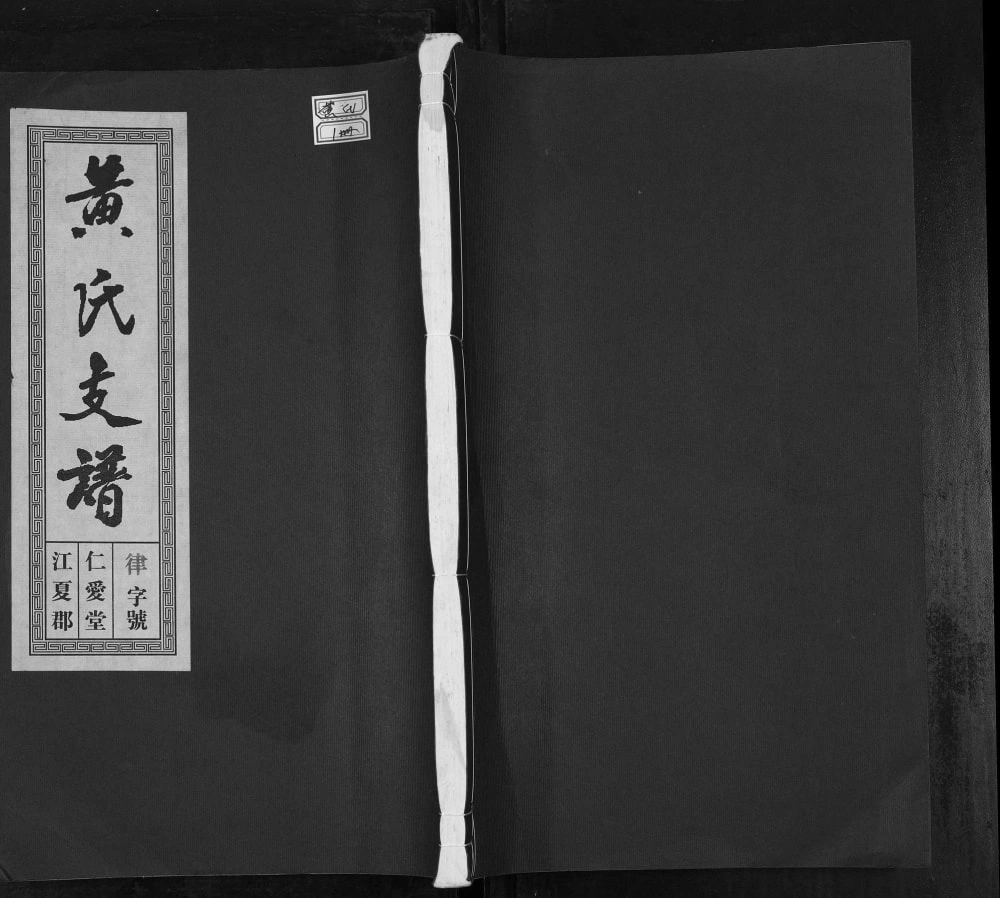 黄氏支譜
律字號
仁愛堂
江夏郡
黄
1册